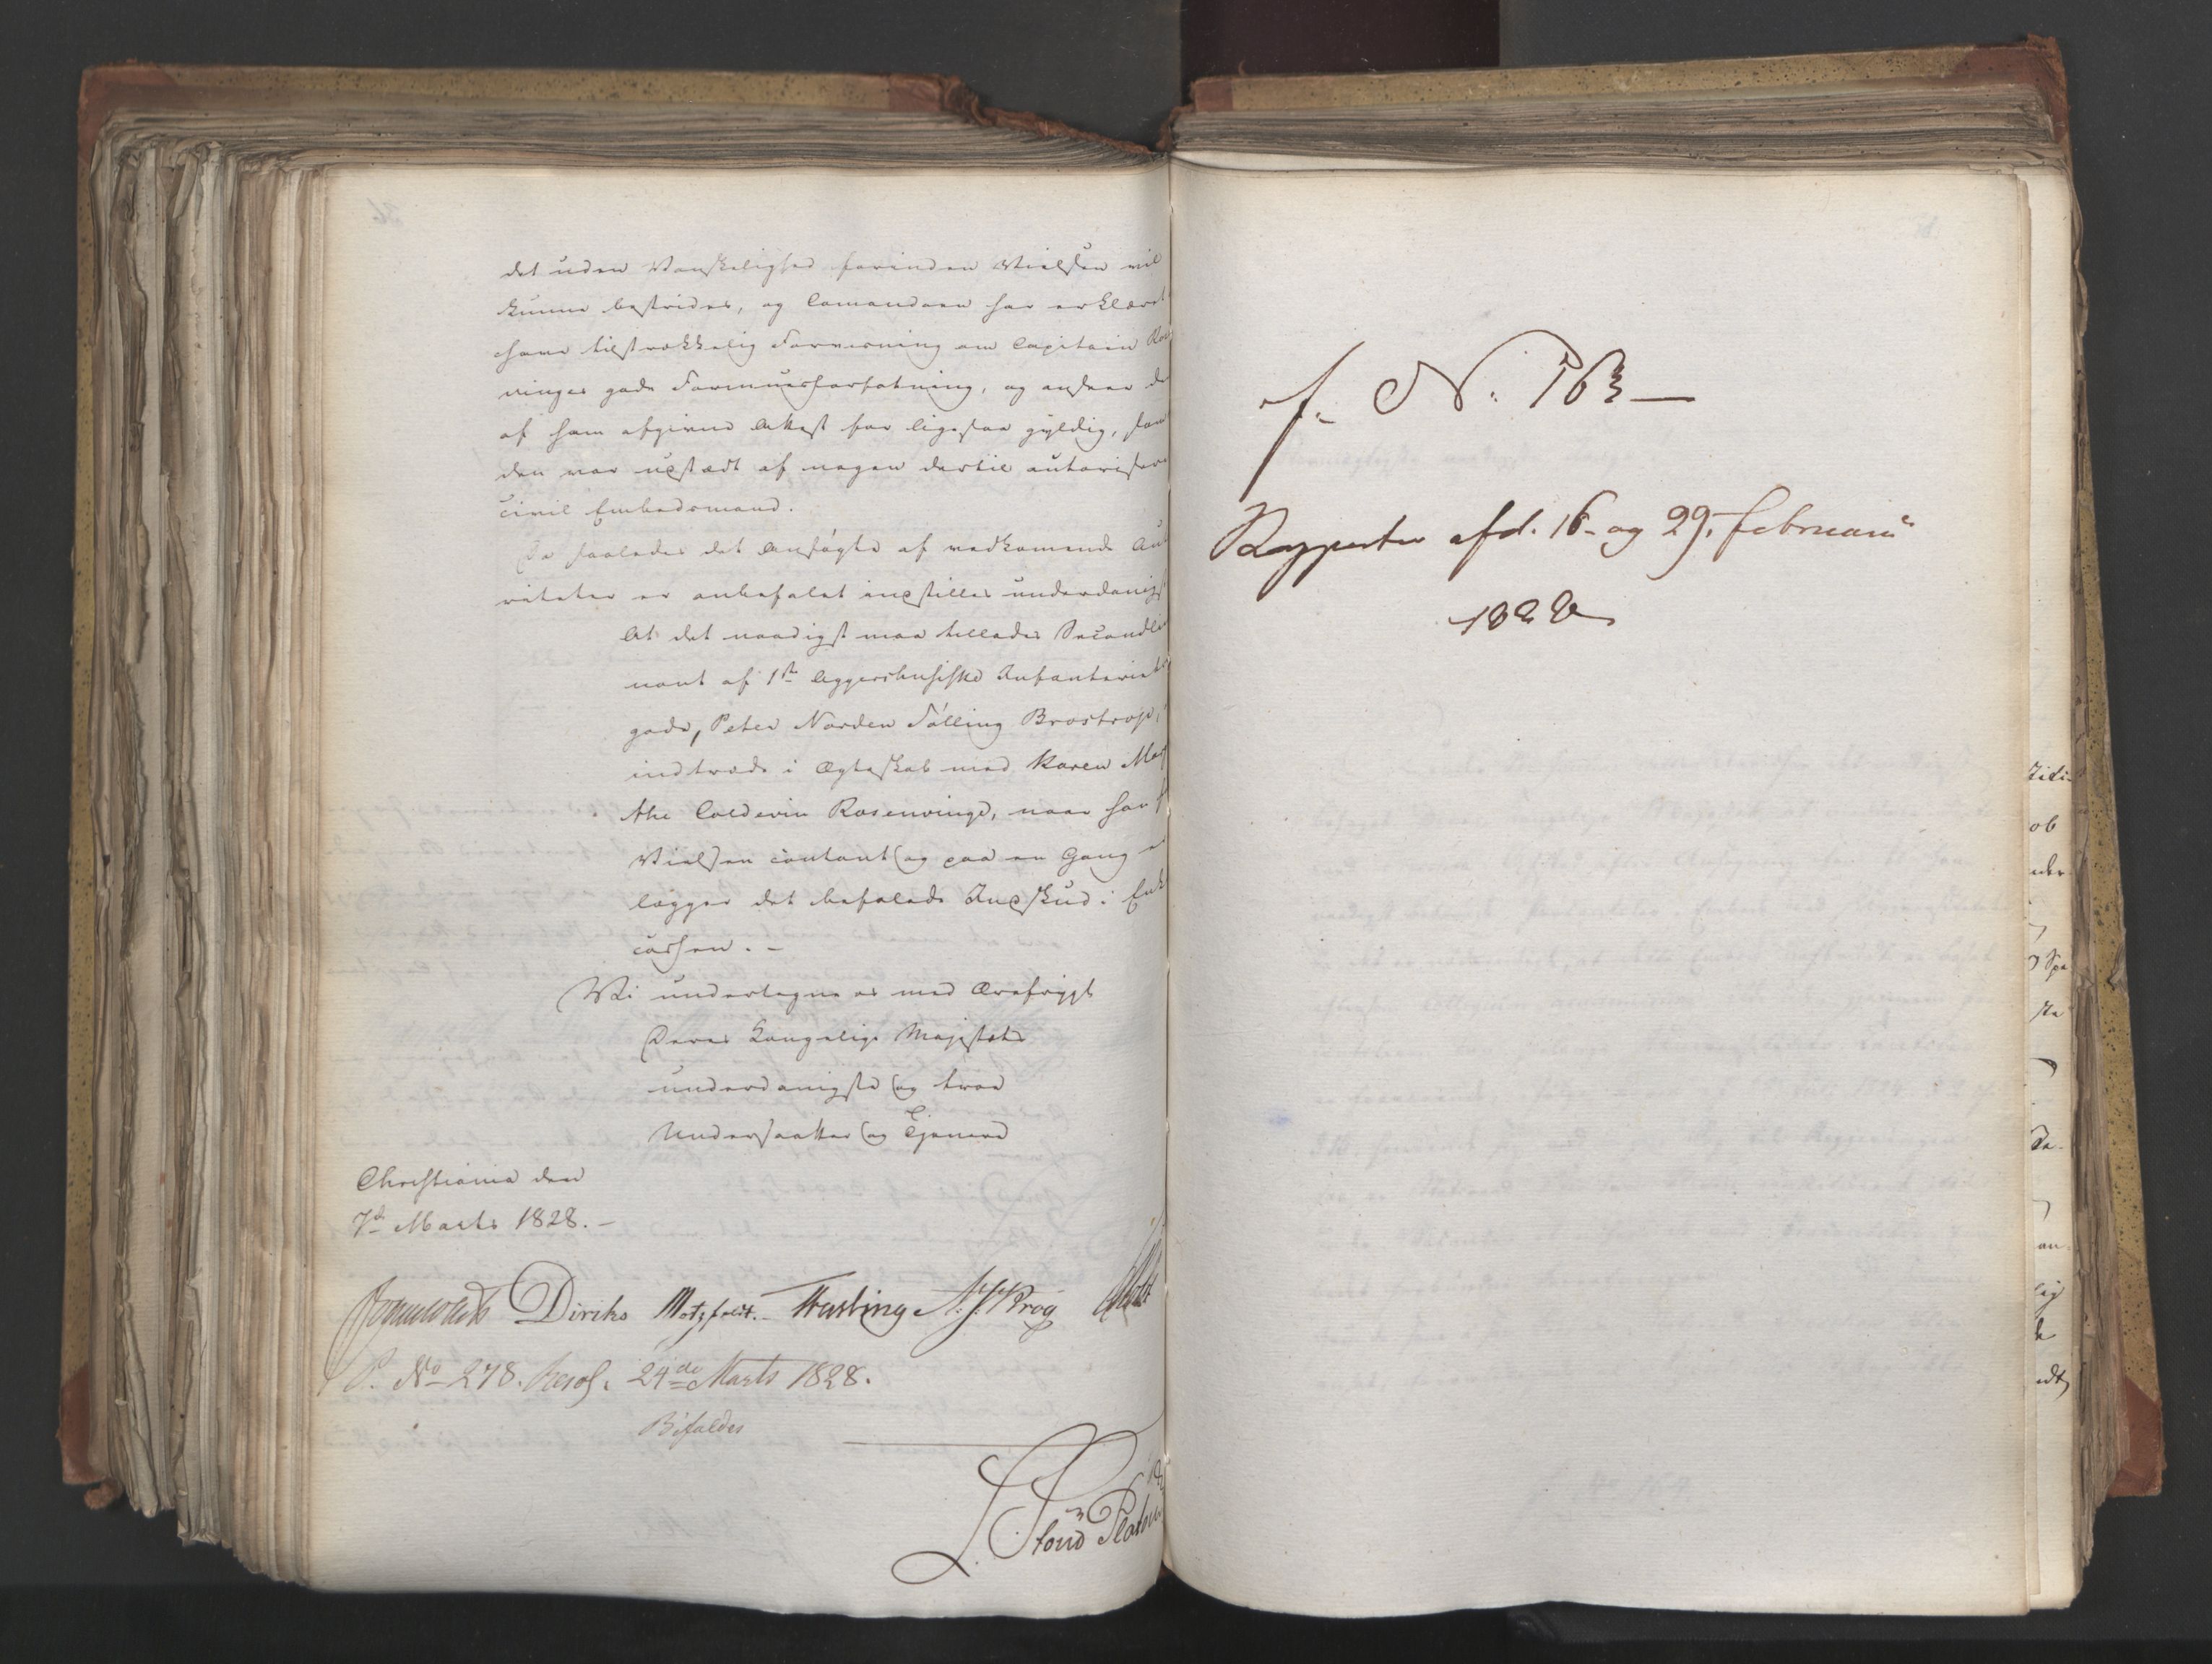 det uden Vanskelighed forinden Vielsen vil
kunne bestrides, og Comandoen har erklæret
have tilstrækkelig Forvisning om Capitain Ro
vinges gode Formuesforfatning, og anseer de
af ham afgivne Attest for ligesaa gyldig, som
den var udstædt af nogen dertil autorisere
civil Embedsmand.
Da saaledes det Ansøgte af vedkomende Au
riteter er anbefalet indstilles underdanigst
At det naadigst maa tillades Secondli
nant af 1ste Aggershusiske Infanterieb
gade, Peter Norden Sølling Brostrop,
indtræde i Ægteskab med Karen Mar
the Colderin Rosenvinge, naar han f
Vielsen contant og paa en Gang e
lægger det befalede Indskud i Enk
cassen. -
Vi undertegne os med Ærefrygt
Deres Kongelige Majestæts
underdanigste og troe
Undersaatter og Tjenere
Christiania den
7de Marts 1828. -
Diriks Motzfeldt. N. J. Krog
P. No 278. Resol. 24de Marts 1828.
Bifaldes
f. N. 163 -
Rapporter afd. 16. og 29. Februarii
1828